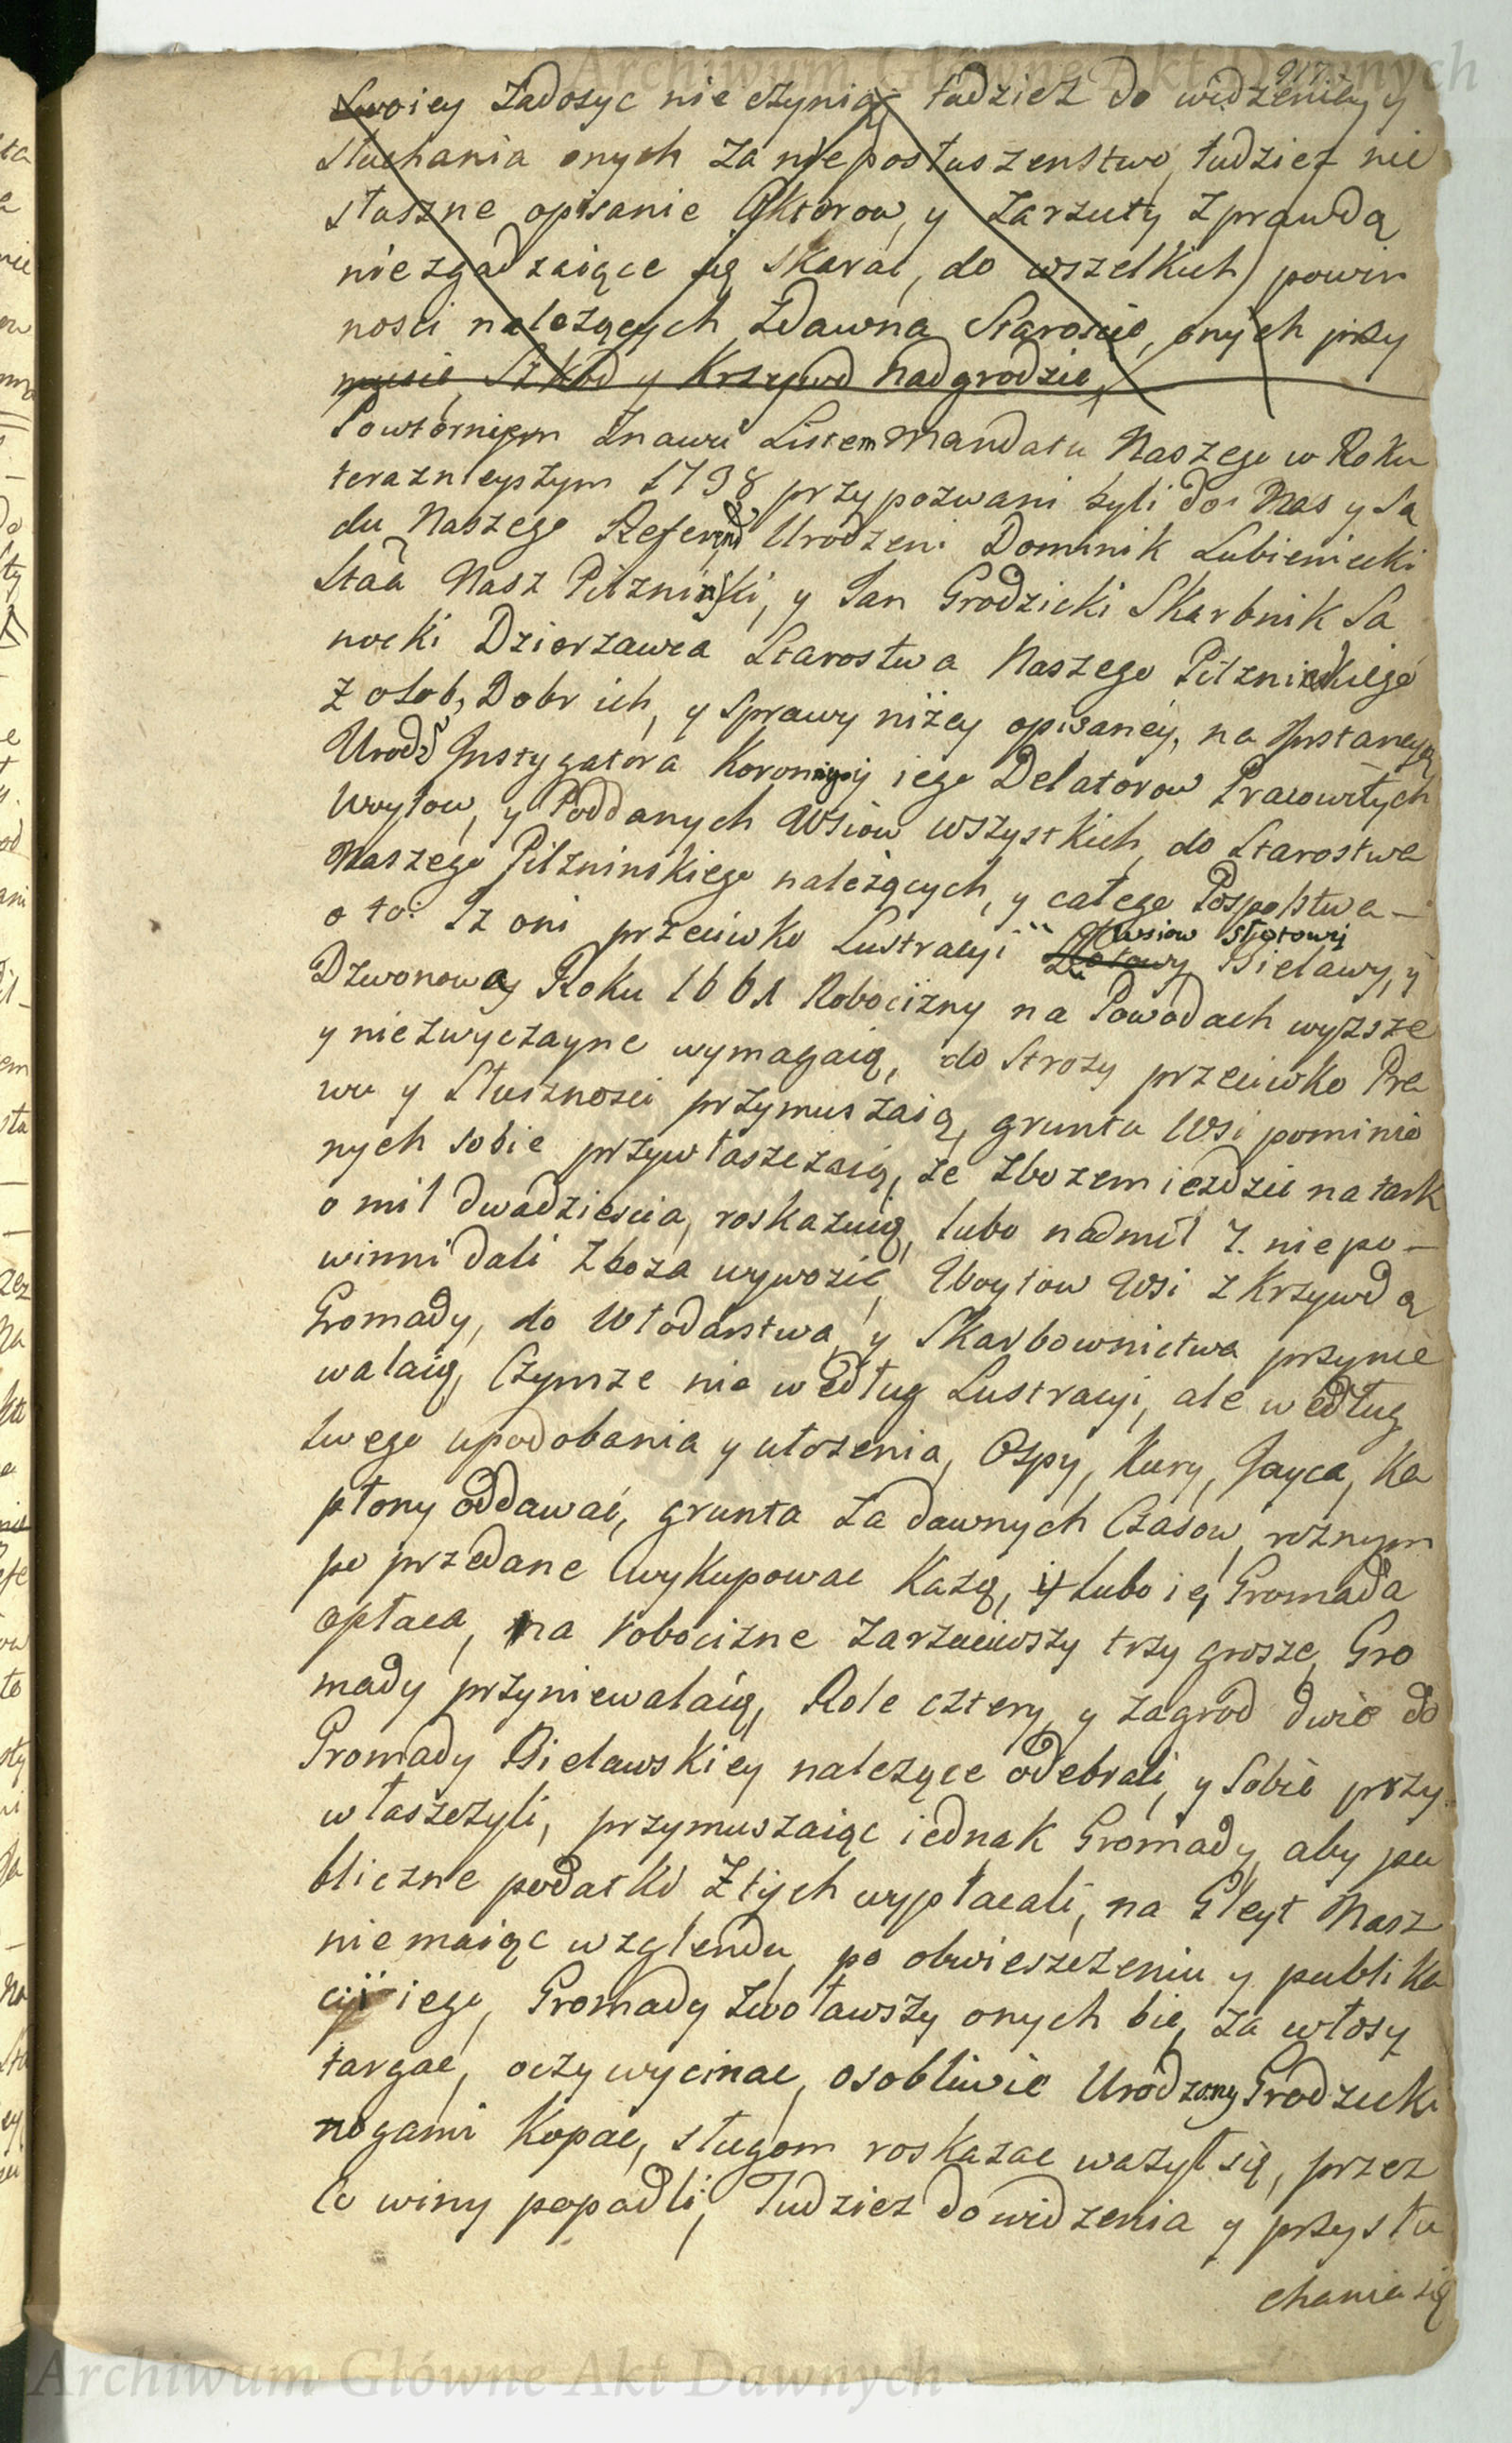 917.
Swoiey zadosyc nie czynią, tudziesz do widzenia y
Słuchania onych za nieposłuszenstwo, tudziesz nie
słuszne opisanie Aktorow, y zarzuty z prawdą
niezgadzaiące się skarac, do wszelkich powin
nosci należących zdawna Staroscie, onych przy
music, Szkod y Krzywd nadgrodzic,
Powtornięm znawu Listem Mandatu Naszego w Roku
teraznieyszym 1738 przypozwani byli do Nas y Są
du Naszego Referend Urodzeni Dominik Lubieniecki
Stta Nasz Pilzninski, y Jan Grodzicki Skarbnik Sa
nocki Dzierzawca Starostwa Naszego Pilzninskiego
z osob, Dobr ich, y sprawy niżey opisaney, na Instancyą
Urodz Instygatora Koronnego y iego Delatorow Pracowitych
Woytow, y Poddanych Wsiow wszystkich, do Starostwa
Naszego Pilzninskiego należących, y całego Pospolstwa –
o to: Iz oni przeciwko Lustracyi Wsiow Słotowy Bielawy, y
Dzwonowy Roku 1661 Robocizny na Powodach wyższe
y niezwyczayne wymagaią, do Strozy przeciwko Pra
wu y Słusznosci przymuszaią, grunta Wsi pominio
nych sobie przywłaszczaią, ze zbozem iezdzic na targ
o mil dwadziescia, roskazuią, lubo nadmil 7. niepo –
winni dali zboza wywozić, Woytow Wsi z Krzywdą
Gromady, do Włodarstwa y Skarbownictwa przynie
walaią, Czymsze nie według Lustracyi, ale według
swego upodobania y ułozenia, Ospy, Kury, Jayca, Ka
płony oddawać, grunta za dawnych Czasow roznym
po przedane wykupowac Kazą, y lubo ie Gromada
opłaca, na robocizne zarzuciwszy trzy grosze, Gro
mady przyniewalaią, Role cztery y zagrod dwie do
Gromady Bielawskiey należące odebrali, y Sobie przy
właszczyli, przymuszaiąc iednak Gromady, aby pu
bliczne podatki z tych wypłacali, na Gleyt Nasz
niemaiąc względu, po obwieszczeniu y publika
cyi iego, Gromady zwoławszy onych bic, za włosy
targac, oczy wycinac, osobliwie Urodzony Grodzicki
nogami Kopac, sługom roskazac ważył się, przez
Co winy popadli, Tudziesz do widzenia y przysłu
chania się